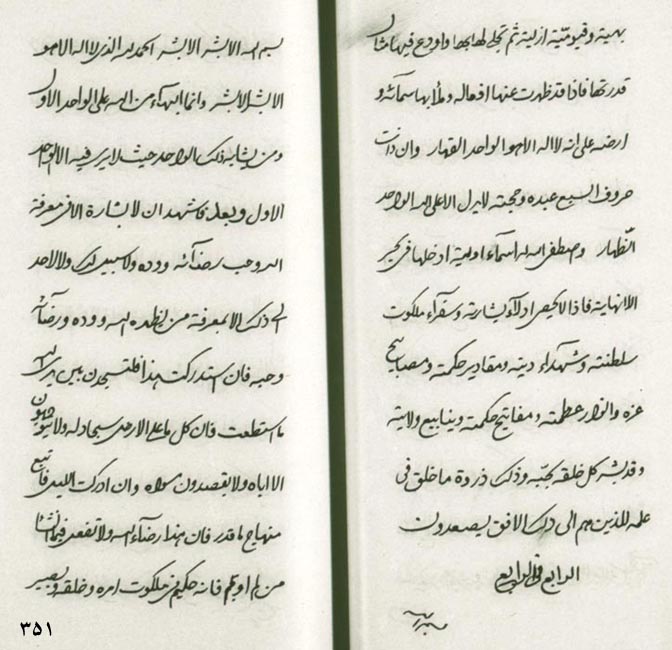 بهية وقيومية ازلية ثم تجلى لها بها واودع فيها مثال
قدرتها فاذا قد ظهرت عنها افعاله وملأ بها سمآئه و
ارضه على انه لا اله الا هو الواحد القهار وان ذات
حروف السبع عبده وحجته الواحد
الظهار واصطفى الله له اسمآء اولية ادخلها في بحر
اللانهاية فاذا لا يحصى ادلاء بشارته وسفرآء ملكوت
سلطنته وشهداء دينه ومقادير حكمته ومصابيح
عزه وانوار عظمته ومفاتيح حكمته وينابيع ولايته
وقد بشر كل خلقه بحبه وذلك ذروة ما خلق في
علمه للذين هم الى ذلك الافق يصعدون
الرابع في الرابع
بسم الله الابشر الابشر الحمد لله الذي لا اله الا هو
الابشر الابشر وانما البهآء من الله على الواحد الاول
ومن يشابه ذلك الواحد حيث لا يرى فيه الا الواحد
الاول وبعد فاشهد ان لا بشارة الا في معرفة
الله وحب رضآئه ووده ولا سبيل لك ولا لاحد
الى ذلك الا بمعرفة من يظهره الله ووده ورضآئه
وحبه فان استدركت هذا فلتسجدن بين يدي الله
ما استطعت فان كل ما على الارض سيجادله ولا يتوجهون
الا اياه ولا يقصدون سواه وان ادركت الليل فاتبع
منهاج ما قدر فان هذا رضآء الله ولا تقعد فيما
من بم او لم فانه حكيم في ملكوت امره وخلقه وبصير
٣٥١